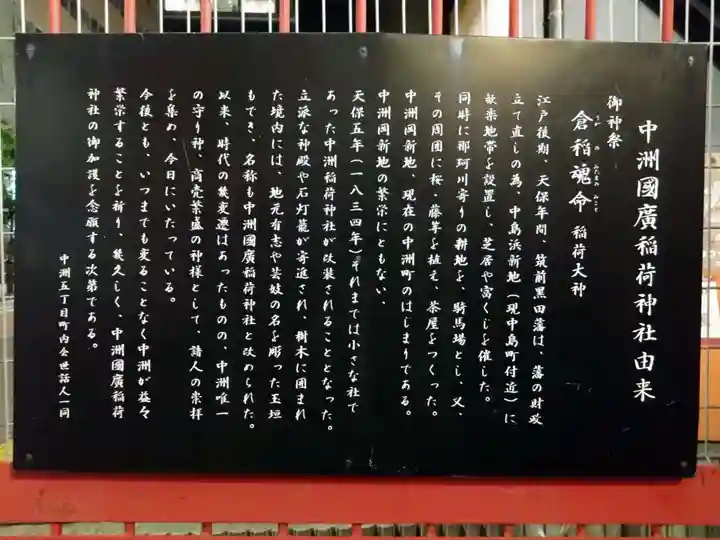 中洲國廣稲荷神社由来
御神祭
倉稲魂命 稲荷大神
うか の みたまの みこと
江戸後期、天保年間、筑前黒田藩は、藩の財政
立て直しの為、中島浜新地(現中島町付近)に
歓楽地帯を設置し、芝居や富くじを催した。
同時に那珂川寄りの耕地を、騎馬場とし、又、
その周囲に桜、藤等を植え、茶屋をつくった。
中洲岡新地、現在の中洲町のはじまりである。
中洲岡新地の繁栄にともない、
天保五年(一八三四年)それまでは小さな社で
あった中洲稲荷神社が改装されることとなった。
立派な神殿や石灯籠が寄進され、樹木に囲まれ
た境内には、地元有志や芸妓の名を彫った玉垣
もでき、名称も中洲國廣稲荷神社と改められた。
以来、時代の変遷はあったものの、中洲唯一
の守り神、商売繁盛の神様として、諸人の崇拝
を集め、今日にいたっている。
今後とも、いつまでも変ることなく中洲が益々
繁栄することを祈り、幾久しく、中洲國廣稲荷
神社の御加護を念願する次第である。
中洲五丁目町内会世話人一同